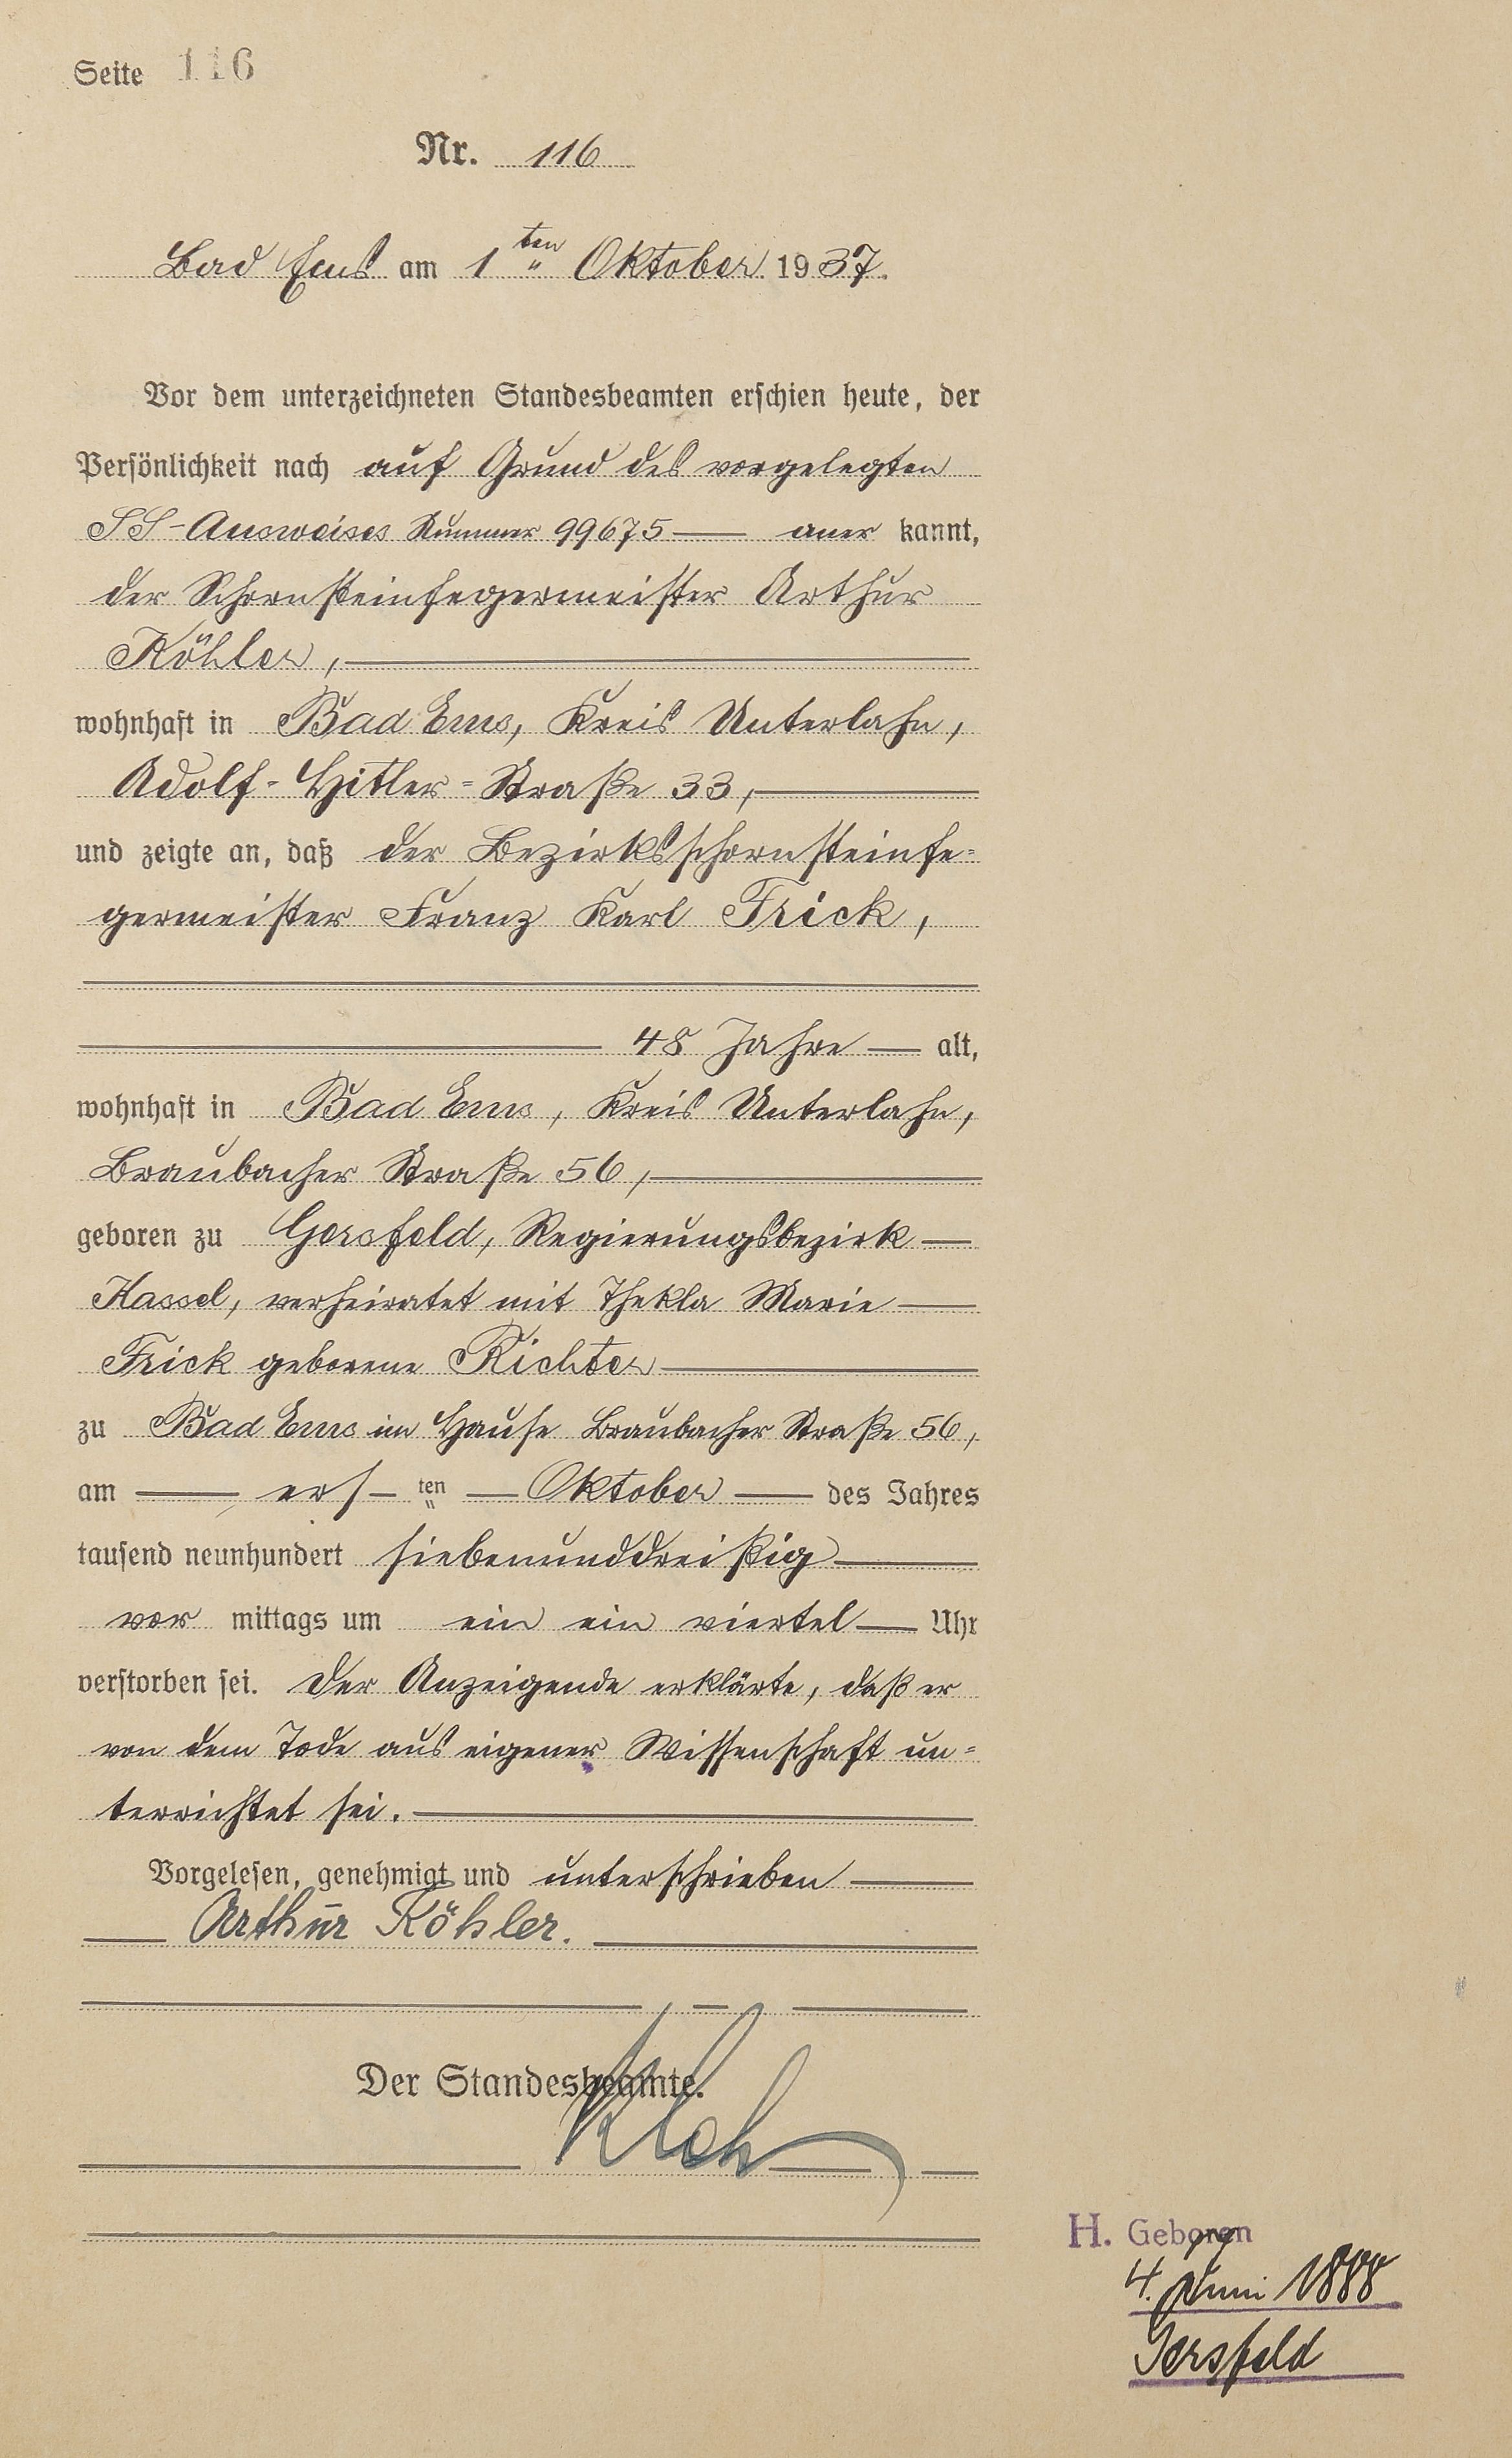 Seite 116
Nr. 116
Bad Ems am 1ten Oktober 1937.
Vor dem unterzeichneten Standesbeamten erschien heute, der
Persönlichkeit nach auf Grund des vorgelegten
SS-Ausweises Nummer 99675 — aner kannt,
der Schornsteinfegermeister Arthur
Köhler,
wohnhaft in Bad Ems, Kreis Unterlahn,
Adolf-Hitler-Straße 33,
und zeigte an, daß der Bezirksschornsteinfe-
germeister Franz Karl Frick,
48 Jahre — alt,
wohnhaft in Bad Ems, Kreis Unterlahn,
Braubacher Straße 56,
geboren zu Gersfeld, Regierungsbezirk —
Kassel, verheiratet mit Thekla Marie —
Frick geborene Richter
zu Bad Ems im Hause Braubacher Straße 56,
am — ers- ten — Oktober — des Jahres
tausend neunhundert siebenunddreißig
vor mittags um ein ein viertel — Uhr
verstorben sei. Der Anzeigende erklärte, daß er
von dem Tode aus eigener Wissenschaft un-
terrichtet sei.
Vorgelesen, genehmigt und unterschrieben
Arthur Köhler.
Der Standesbeamte.
H. Geboren
4. Juni 1888
Gersfeld